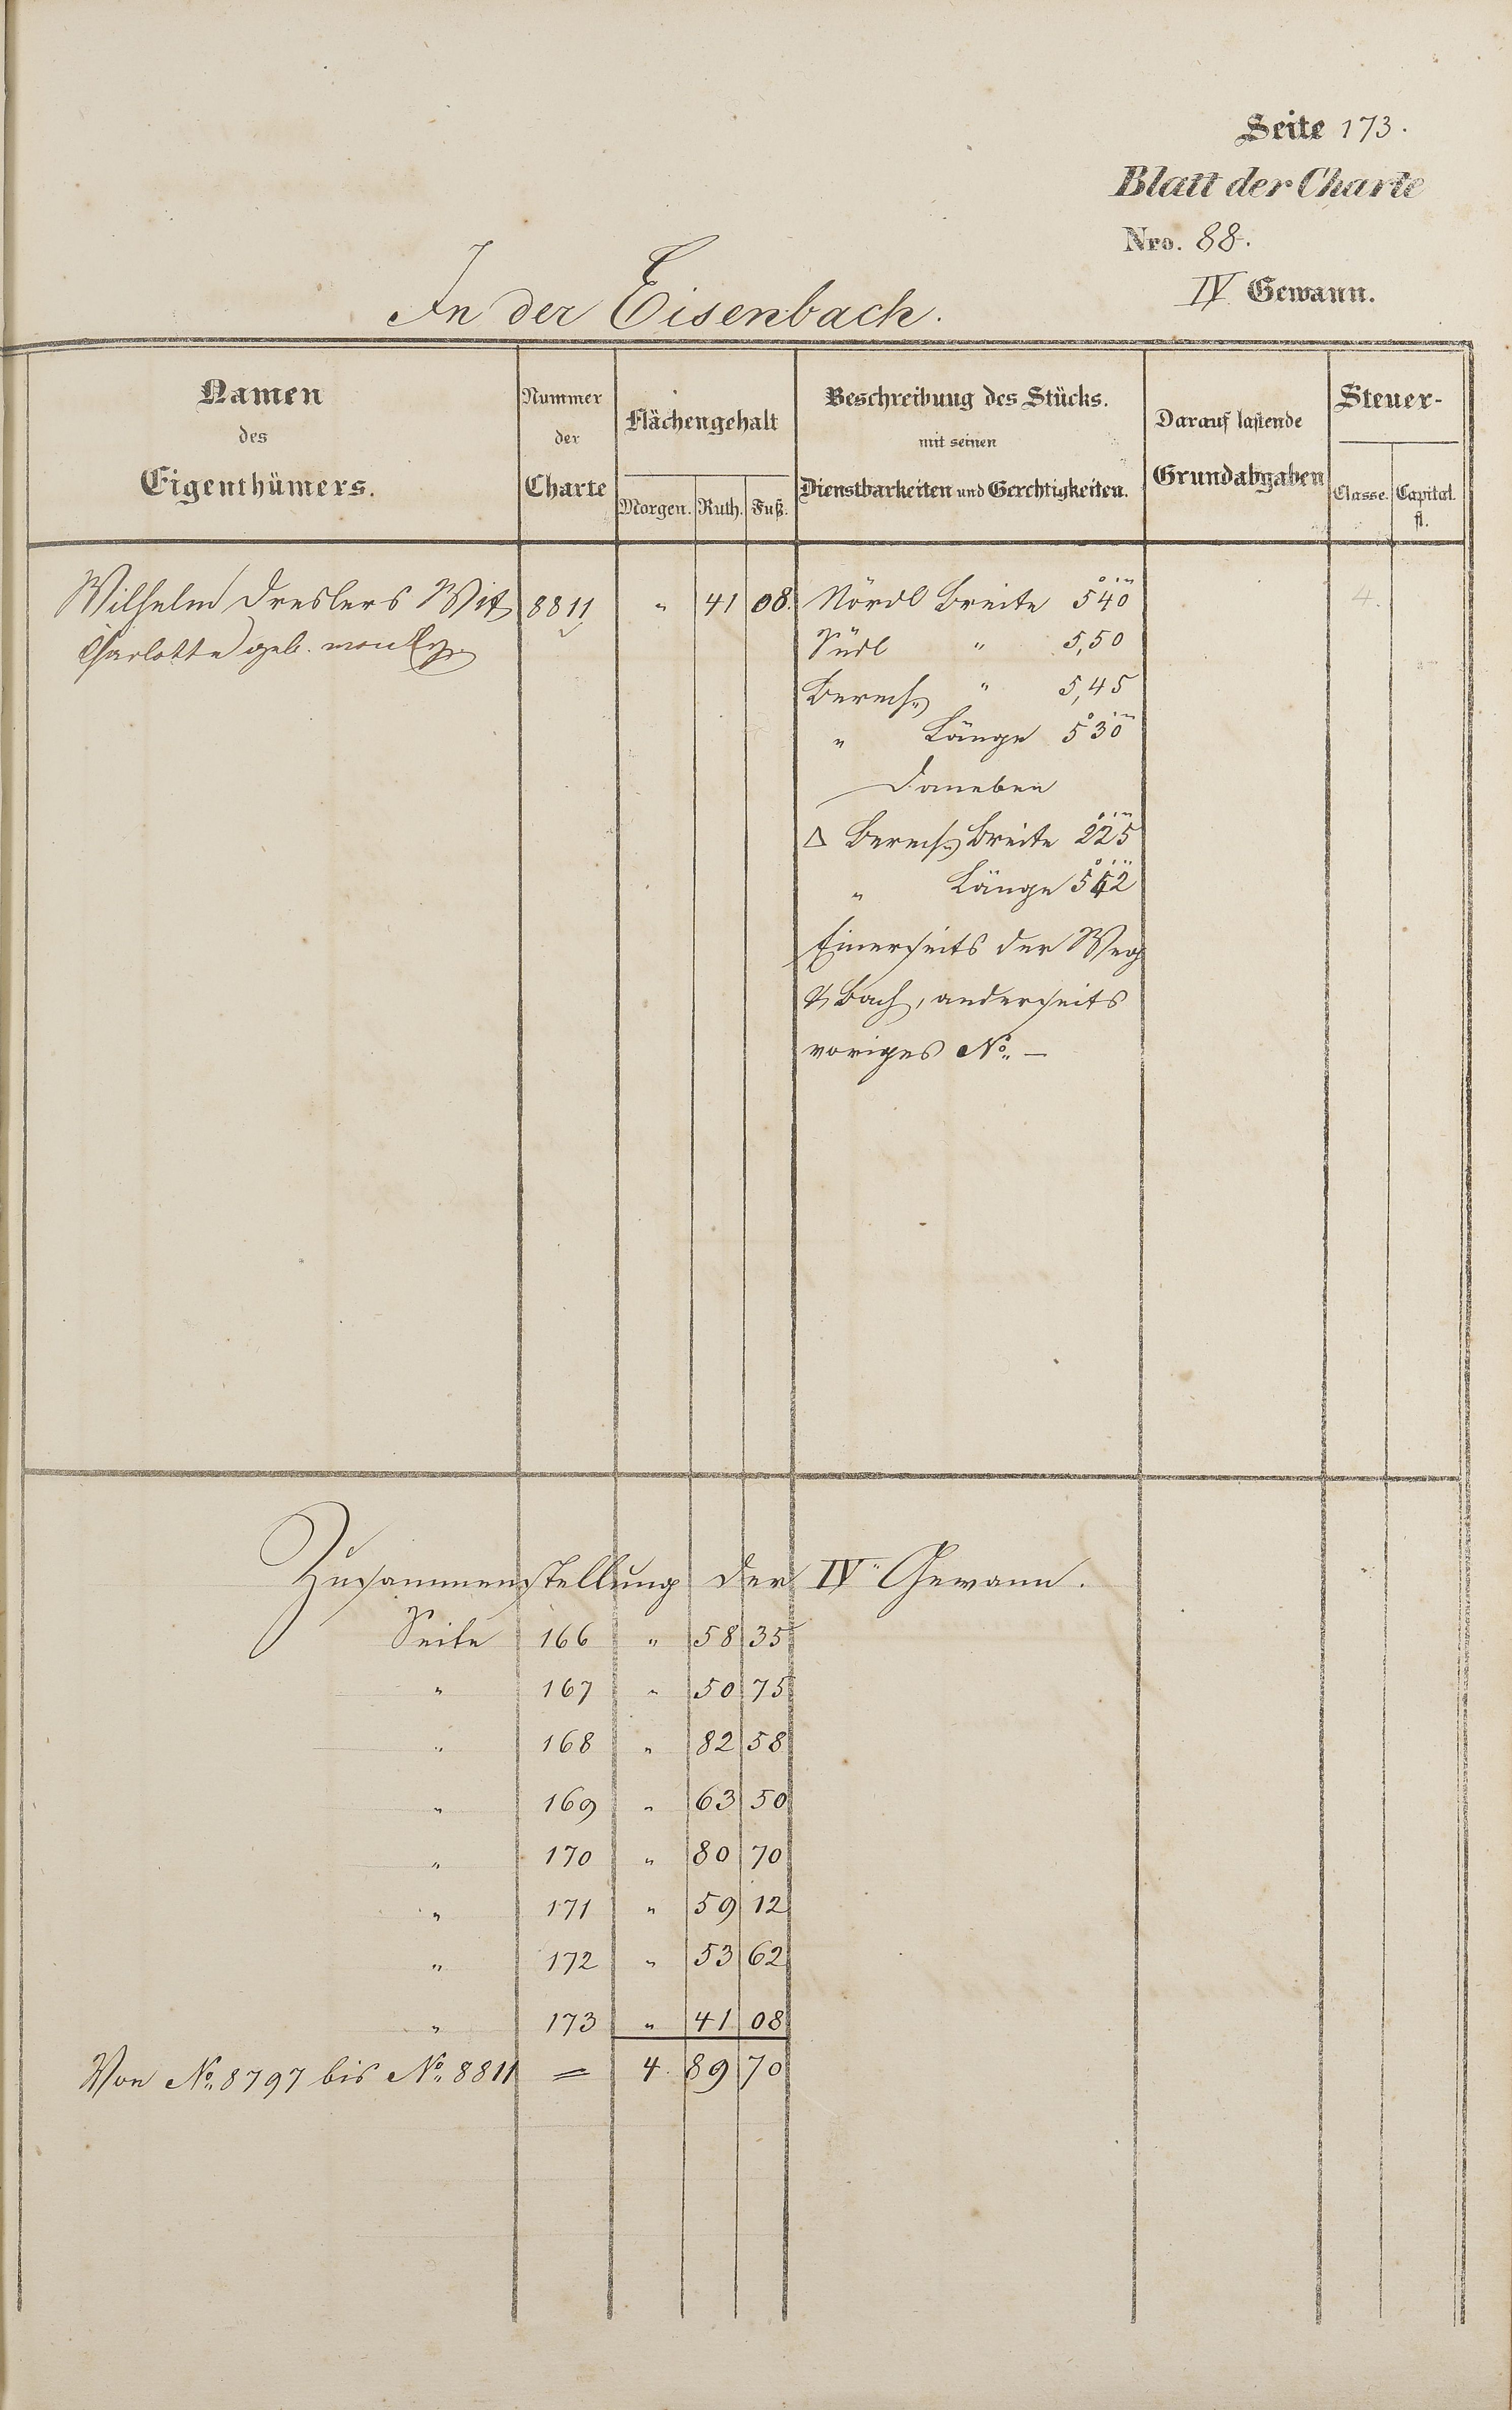 Seite 173.
Blatt der Charte
Nro. 88.
IV Gewann.
In der Eisenbach.
Namen des Eigenthümers.
Nummer der Charte
Flächengehalt
Morgen. Ruth. Fuß.
Beschreibung des Stücks.
mit seinen
Dienstbarkeiten und Gerechtigkeiten.
Darauf lastende
Grundabgaben
Steuer-
Classe. Capital. fl.
Wilhelm Dreslers Wit 8811 " 41 08. Nördl Breite 540 4.
Charlotte geb.
Südl " 5,50
Berech " 5,45
" Länge 530
Daneben
Δ Berech Breite 225
" Länge 542
Einerseits der Weg
& Bach, anderseits
voriges No. —
Zusammenstellung der IV Gewann.
Seite 166 " 58 35
" 167 " 50 75
" 168 " 82 58
" 169 " 63 50
" 170 " 80 70
" 171 " 59 12
" 172 " 53 62
" 173 " 41 08
Von No. 8797 bis No. 8811 = 4. 89 70